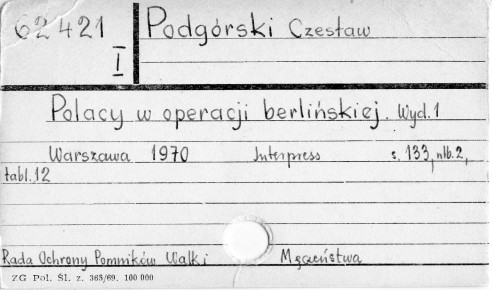 62421 Podgórski Czesław
I
Polacy w operacji berlińskiej. Wyd. 1
Warszawa 1970 Interpress s. 133, nlb. 2,
tabl. 12
Rada Ochrony Pomników Walki Męczeństwa
ZG Pol. Śl. z. 365/69. 100 000